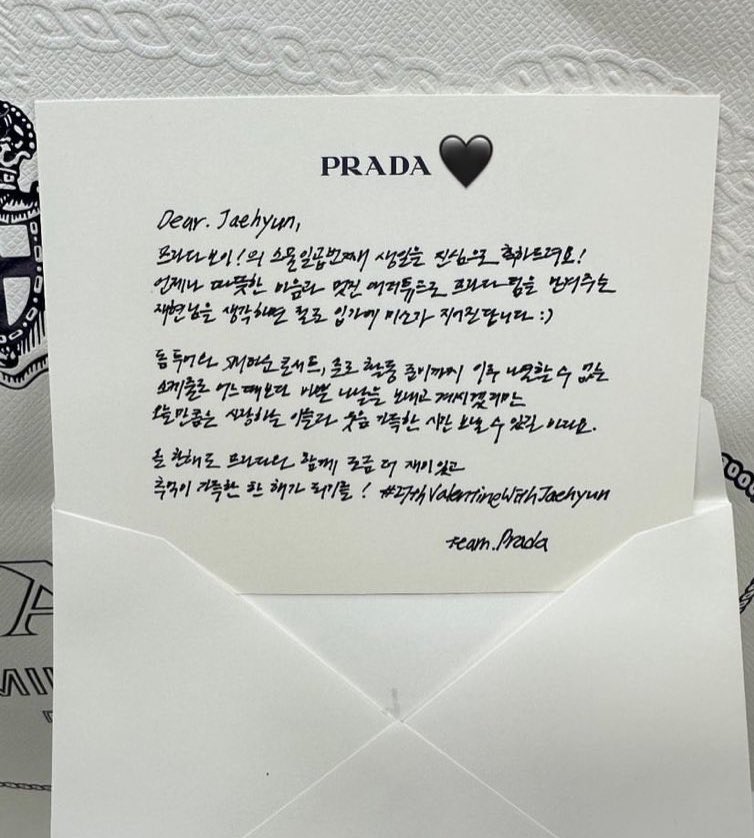 PRADA🖤
Dear. Jaehyun,
프라다보이!의 스물일곱번째 생일을 진심으로 축하드려요!
언제나 따뜻한 마음과 멋진 애티튜드로 프라다 팀을 반겨주는
재현님을 생각하면 절로 입가에 미소가 지어진답니다 :)
돔 투어와 SM파쇼 콘서트, 솔로 활동 준비까지 이루 나열할 수 없는
스케쥴로 어느때보다 바쁜 나날을 보내고 계시겠지만
오늘만큼은 사랑하는 이들과 웃음 가득한 시간 보낼 수 있길 바라요.
올 한해도 프라다와 함께 조금 더 재미있고
추억이 가득한 한 해가 되기를! #27thValentineWithJaehyun
team.Prada